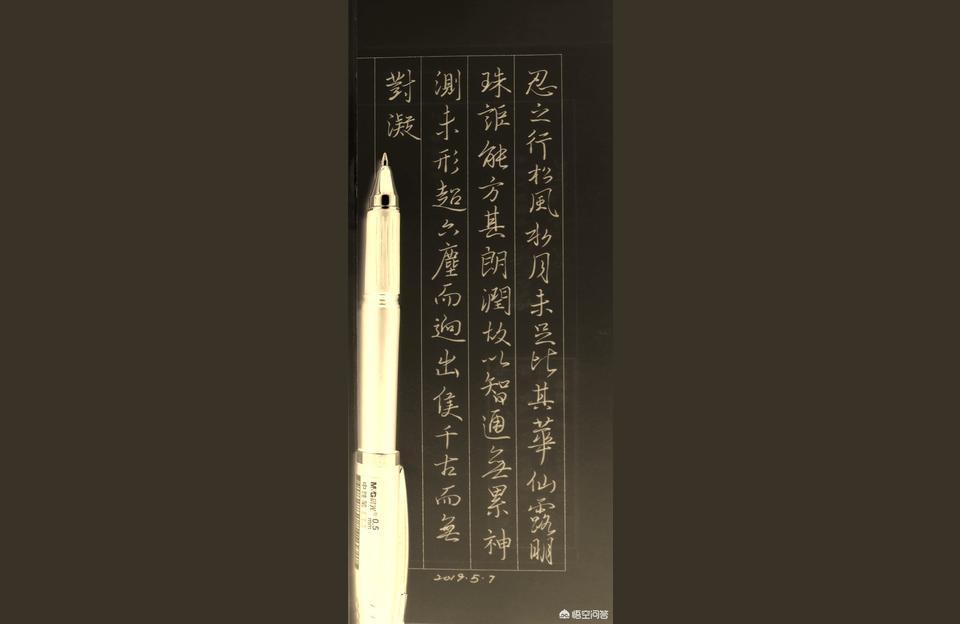 忍之行松風水月未足比其華仙露明
珠詎能方其朗潤故以智通無累神
測未形超六塵而逈出隻千古而無
對凝
2019.5.7
M&G 0.5
mm
悟空问答